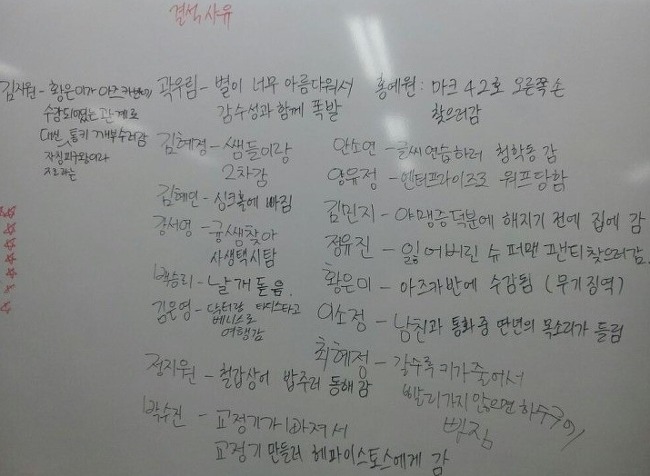 결석사유
김지원 - 황은이가 아즈카반에
수감되어있는 관계로
대신 퉁키 깨부수러감
자칭피구왕이라
지르라는
곽우림 - 별이 너무 아름다워서
감수성과 함께 폭발
김혜정 - 쌤들이랑
2차감
김혜인 - 싱크홀에 빠짐
강서영 - 궁쌤찾아
사생택시탐
백승리 - 날개 돋음.
김은영 - 닥터랑 타디스타고
베니스로
여행감
정지원 - 철갑상어 밥주러 동해감
박수진 - 교정기가 빠져서
교정기 만들러 헤파이스토스에게 감
홍예원 : 마크 42호 오른쪽 손
찾으러감
안소연 - 글씨연습하러 청학동 감
양유정 - 엔터프라이즈로 워프당함
김민지 - 야맹증덕분에 해지기 전에 집에 감
정유진 - 잃어버린 슈퍼맨 팬티찾으러감.
황은이 - 아즈카반에 수감됨 (무기징역)
이소정 - 남친과 통화중 딴년의 목소리가 들림
최혜정 - 갈수록 키가줄어서
빨리가지 않으면 하수구에
빠짐